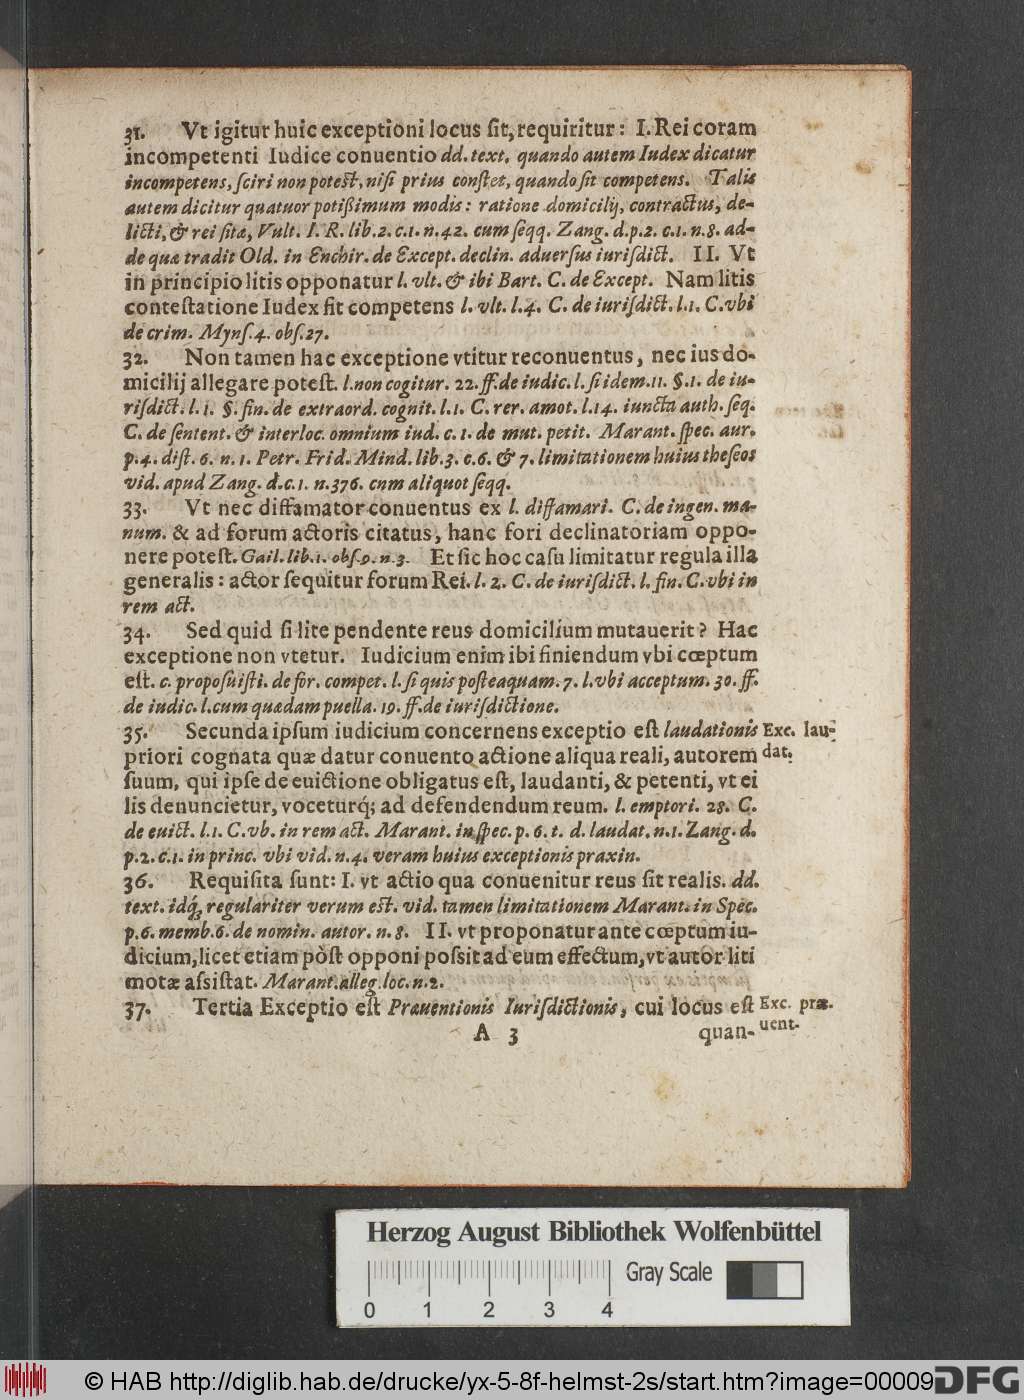 31. Vt igitur huic exceptioni locus ſit, requiritur: I. Rei coram
incompetenti Iudice conuentio dd. text. quando autem Iudex dicatur
incompetens, ſciri non poteſt, niſi prius conſtet, quando ſit competens. Talis
autem dicitur quatuor potißimum modis: ratione domicilij, contractus, de-
licti, & rei ſitæ, Vult. I. R. lib. 2. c. 1. n. 42. cum ſeqq. Zang. d. p. 2. c. 1. n. 8. ad-
de quæ tradit Old. in Enchir. de Except. declin. aduerſus iuriſdict. II. Vt
in principio litis opponatur l. vlt. & ibi Bart. C. de Except. Nam litis
conteſtatione Iudex fit competens l. vlt. l. 4. C. de iuriſdict. l. 1. C. vbi
de crim. Mynſ. 4. obſ. 27.
32. Non tamen hac exceptione vtitur reconuentus, nec ius do-
micilij allegare poteſt. l. non cogitur. 22. ff. de iudic. l. ſi idem. 11. §. 1. de iu-
riſdict. l. 1. §. fin. de extraord. cognit. l. 1. C. rer. amot. l. 14. iuncta auth. ſeq.
C. de ſentent. & interloc. omnium iud. c. 1. de mut. petit. Marant. ſpec. aur.
p. 4. diſt. 6. n. 1. Petr. Frid. Mind. lib. 3. c. 6. & 7. limitationem huius theſeos
vid. apud Zang. d. c. 1. n. 376. cum aliquot ſeqq.
33. Vt nec diffamator conuentus ex l. diffamari. C. de ingen. ma-
num. & ad forum actoris citatus, hanc fori declinatoriam oppo-
nere poteſt. Gail. lib. 1. obſ. 9. n. 3. Et ſic hoc caſu limitatur regula illa
generalis: actor ſequitur forum Rei. l. 2. C. de iuriſdict. l. fin. C. vbi in
rem act.
34. Sed quid ſi lite pendente reus domicilium mutauerit? Hac
exceptione non vtetur. Iudicium enim ibi finiendum vbi cœptum
eſt. c. propoſuiſti. de for. compet. l. ſi quis poſteaquam. 7. l. vbi acceptum. 30. ff.
de iudic. l. cum quædam puella. 19. ff. de iuriſdictione.
35. Secunda ipſum iudicium concernens exceptio eſt laudationis Exc. lau-
priori cognata quæ datur conuento actione aliqua reali, autorem dat.
ſuum, qui ipſe de euictione obligatus eſt, laudanti, & petenti, vt ei
lis denuncietur, voceturq́; ad defendendum reum. l. emptori. 28. C.
de euict. l. 1. C. vb. in rem act. Marant. in ſpec. p. 6. t. d. laudat. n. 1. Zang. d.
p. 2. c. 1. in princ. vbi vid. n. 4. veram huius exceptionis praxin.
36. Requiſita ſunt: I. vt actio qua conuenitur reus ſit realis. dd.
text. idq́; regulariter verum eſt. vid. tamen limitationem Marant. in Spec.
p. 6. memb. 6. de nomin. autor. n. 8. II. vt proponatur ante cœptum iu-
dicium, licet etiam pòſt opponi poſsit ad eum effectum, vt autor liti
motæ aſsiſtat. Marant. alleg. loc. n. 2.
37. Tertia Exceptio eſt Præuentionis Iuriſdictionis, cui locus eſt Exc. præ-
A 3 quan- uent.
Herzog August Bibliothek Wolfenbüttel
Gray Scale
0 1 2 3 4
© HAB http://diglib.hab.de/drucke/yx-5-8f-helmst-2s/start.htm?image=00009 DFG